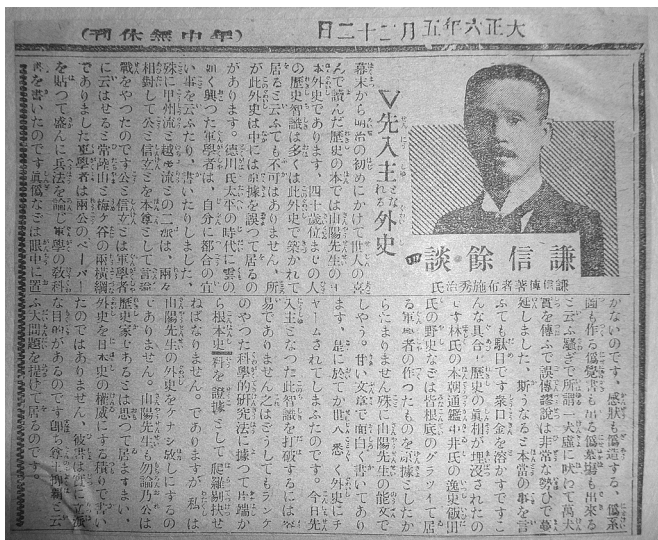 大正六年五月二十二日
(年中無休刊)
謙信餘談 四
謙信傳著者布施秀治氏
▽先入主となれる外史
幕末から明治の初めにかけて世人の喜
んで讀んだ歴史の本では山陽先生の日
本外史であります、四十歳位までの人
の歴史智識は多くは此外史で築かれて
居ると云ふても不可はありません、所
が此外史は中には原據を誤つて居るの
があります。德川氏太平の時代に雲の
如く興つた軍學者は、自分に都合の宜
い事を云ふたり、書いたりしました、
殊に甲州流と越後流との二派は、兩々
相對して公と信玄とを本尊として言論
戰をやつたのです公と信玄とは軍學者
に云はせると常陸山と梅ケ谷の兩橫綱
でありました軍學者は兩公のペーパー
を貼つて盛んに兵法を論じ軍學の敎科
書を書いたのです眞僞などは眼中に置
かないのです、感狀も僞造する、僞系
圖も作る僞覺書も出る僞墓場も出來る
と云ふ騷ぎで所謂一犬虛に吠わて萬犬
實を傳ふで誤傳謬說は非常な勢ひで蔓
延しました、斯うなると本當の事を言
ふても駄目です衆口金を溶かすですこ
んな具合で歷史の眞相が埋沒されたの
です林氏の本朝通鑑中井氏の逸史飯田
氏の野史などは皆根底のグラツイて居
る軍學者の作つたものを原據としたか
らたまりません殊に山陽先生の能文で
しやう。甘い文章で面白く書いてあり
ます、是に於てか世人悉く外史にチ
ャームされてしまふたのです。今日先
入主となつた此智識を打破するには容
易でありません之はどうしてもランケ
のやつた科學的研究法に據つて片端か
ら根本史料を證據として爬羅剔抉せ
ねばなりません。でありますが私は
山陽先生の外史をケナシ放しにするの
でありません。山陽先生も勿論乃公は
歷史家であるとは思つて居ますまい、
外史を日本史の權威にする積りで書い
たのではありません、彼書は實に立派
な目的があるのです卽ち尊王抑覇と云
ふ大問題を提げて居るのです。